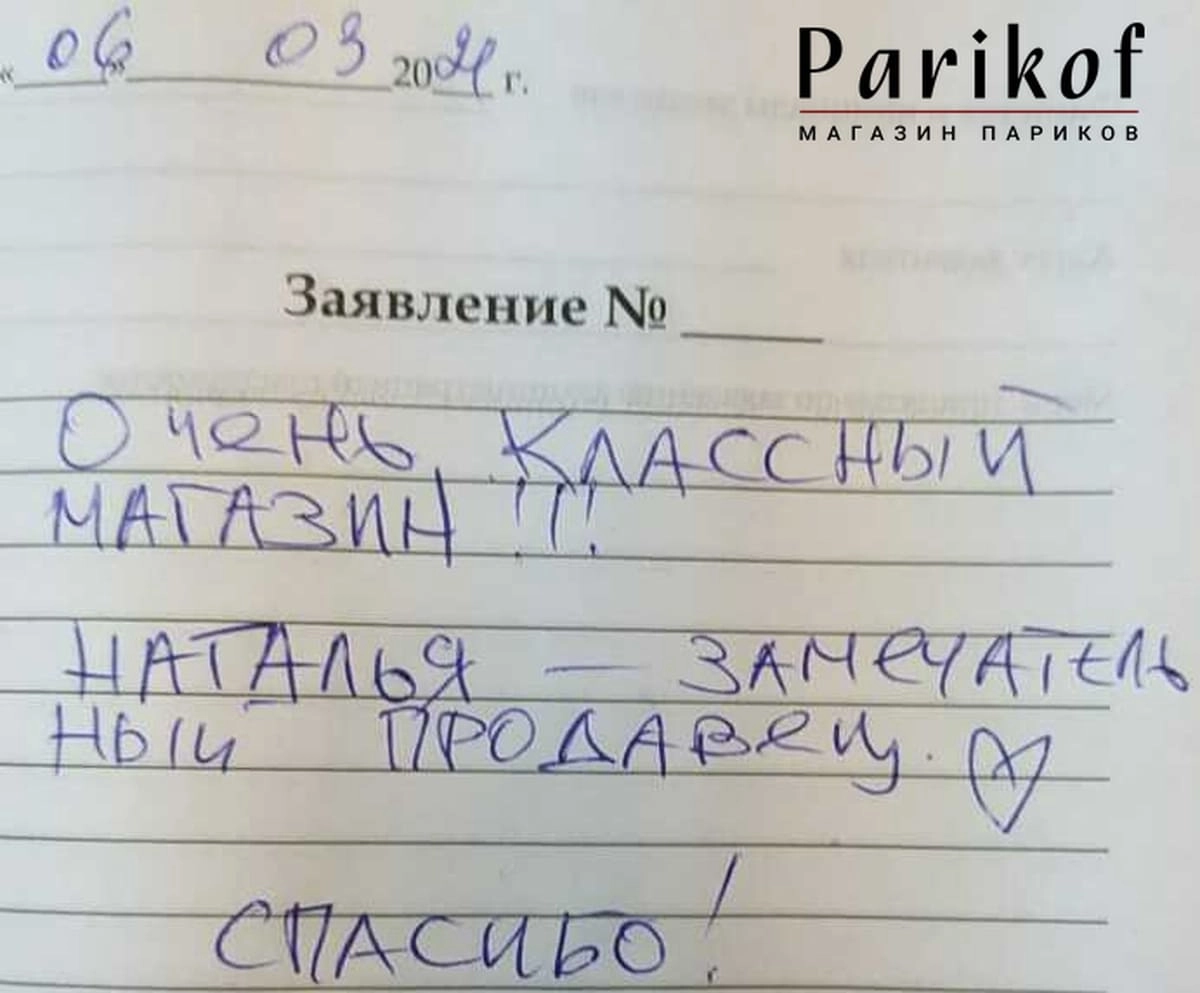 « 06 » 03 2021 г.
Parikof
МАГАЗИН ПАРИКОВ
Заявление № ____
Очень классный
МАГАЗИН !!!
НАТАЛЬЯ — ЗАМеЧАТЕЛЬ
НЫЙ ПРОДАВец.
СПАСИБО!